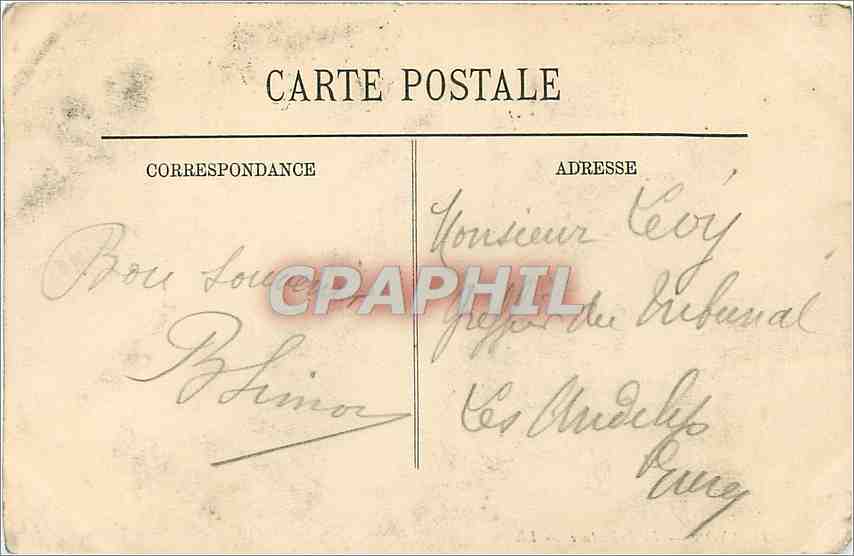 CARTE POSTALE
CORRESPONDANCE
Bon souvenir
B Simon
ADRESSE
Monsieur Levy
du Tribunal
Les Andelys
Eure
CPAPHIL